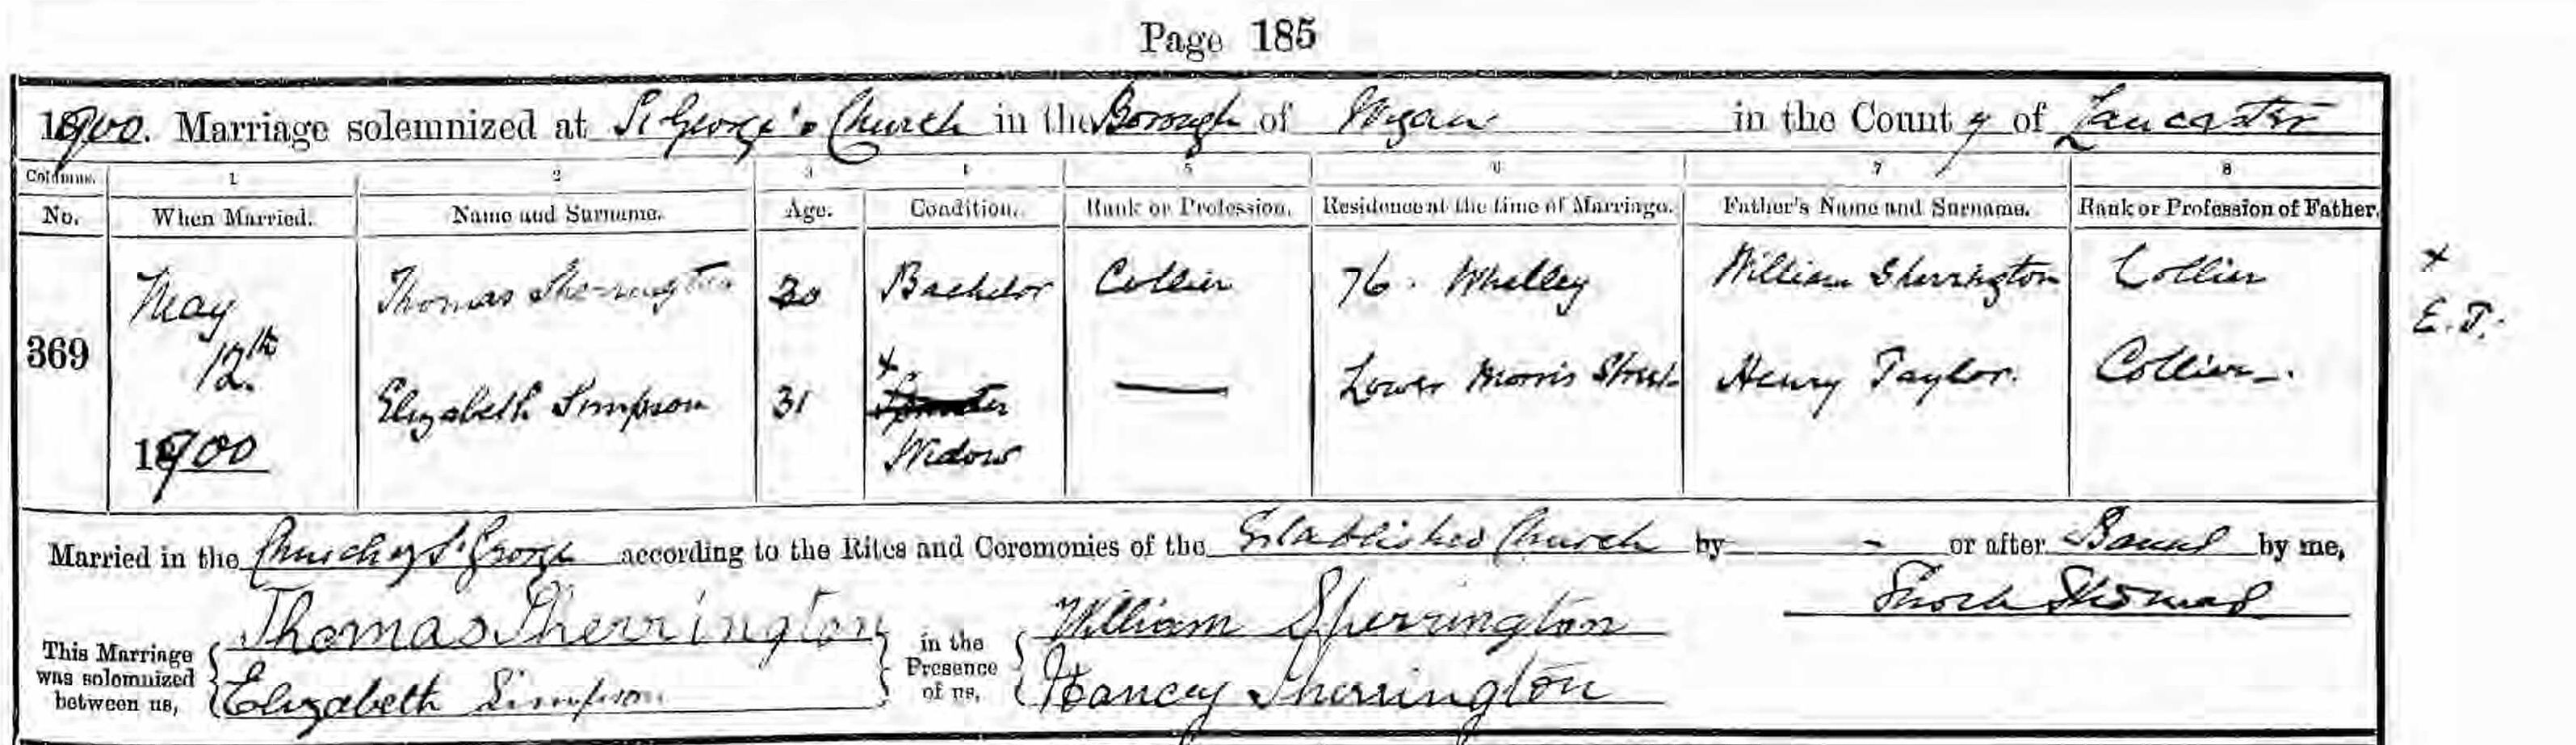 Page 185
1900. Marriage solemnized at St George's Church in the Borough of Wigan in the County of Lancaster
Columns. 1 2 3 4 5 6 7 8
No. When Married. Name and Surname. Age. Condition. Rank or Profession. Residence at the time of Marriage. Father's Name and Surname. Rank or Profession of Father.
369 May 12th 1900
Thomas Sherrington 30 Bachelor Collier 76. Whelley William Sherrington Collier
Elizabeth Simpson 31 x Spinster Widow — Lower Morris Street Henry Taylor. Collier
x
E.T.
Married in the Church of St George according to the Rites and Ceremonies of the Established Church by - or after Banns by me,
Enoch Thomas
This Marriage was solemnized between us,
Thomas Sherrington
Elizabeth Simpson
in the Presence of us,
William Sherrington
Nancy Sherrington